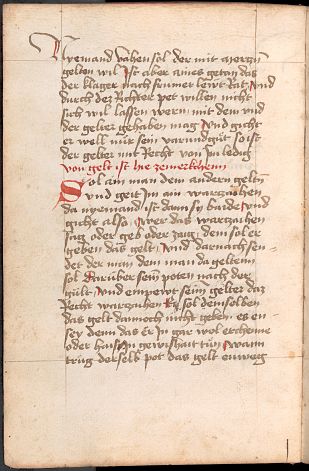 Nyemand vahen sol der mit aygen
gelten wil Ist aber aines getan das
der klager nach seiner lewt Rat Und
durch dez Richter pet willen nicht
sich wil lassen wern mit dem und
der gelter gehaben mag Und gicht
er well mir sein so ist
der gelter mit Recht von Im ledig
von gelt ist hie zemerkhenn
Sol ain man dem andern gelten
Und geit Im ain warzaichen
da nyemand ist dann sy baide Und
gicht also Swer das warzaichen
sag oder geb oder zaig dem sol er
geben das gelt Und darnach sen
det der man dem man da gelten
sol Darüber sein poten nach der
gült Und enpewt sein gelter daz
Recht warzaichen Er sol demselben
das gelt dannoch nicht geben es en
sey denn das Er In gar wol erchenne
oder hab In gewishait tün Wann
trüg derselb pot das gelt enweg